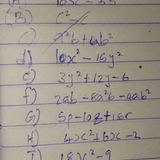 A) 10x² - 35
(B) c²
c) a²b + ab²
d) 10x² - 15y²
e) 3y² + 12y - 6
f) 2ab - 8a²b - 4ab²
G) 5p - 10q + 15r
H) 4x² + 16x - 2
I) 18x² - 9